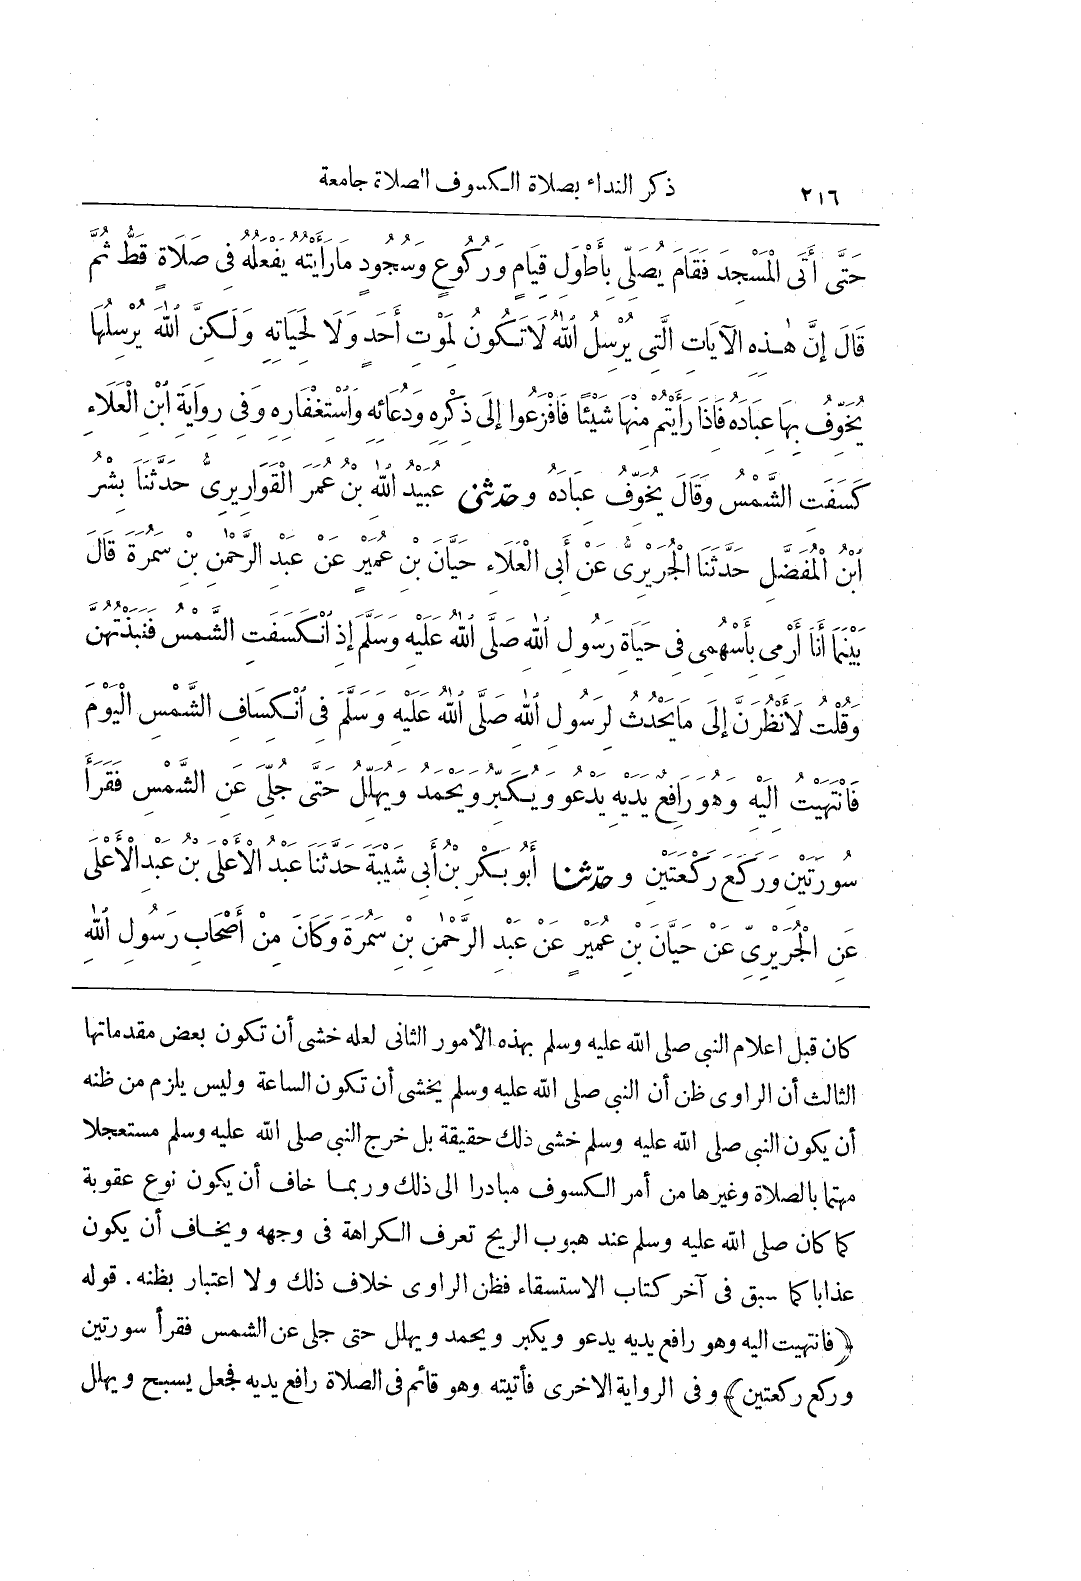 ٢١٦ ذكر النداء بصلاة الكسوف الصلاة جامعة
حَتَّى أَتَى الْمَسْجِدَ فَقَامَ يُصَلِّى بِأَطْوَلِ قِيَامٍ وَرُكُوعٍ وَسُجُودٍ مَا رَأَيْتُهُ يَفْعَلُهُ فِى صَلَاةٍ قَطُّ ثُمَّ
قَالَ إِنَّ هٰذِهِ الْآيَاتِ الَّتِى يُرْسِلُ اللّٰهُ لَا تَكُونُ لِمَوْتِ أَحَدٍ وَلَا لِحَيَاتِهِ وَلَكِنَّ اللّٰهَ يُرْسِلُهَا
يُخَوِّفُ بِهَا عِبَادَهُ فَإِذَا رَأَيْتُمْ مِنْهَا شَيْئًا فَافْزَعُوا إِلَى ذِكْرِهِ وَدُعَائِهِ وَاسْتِغْفَارِهِ وَفِى رِوَايَةِ ابْنِ الْعَلَاءِ
كَسَفَتِ الشَّمْسُ وَقَالَ يُخَوِّفُ عِبَادَهُ وحدثنى عُبَيْدُ اللّٰهِ بْنُ عُمَرَ الْقَوَارِيرِىُّ حَدَّثَنَا بِشْرُ
ابْنُ الْمُفَضَّلِ حَدَّثَنَا الْجُرَيْرِىُّ عَنْ أَبِى الْعَلَاءِ حَيَّانَ بْنِ عُمَيْرٍ عَنْ عَبْدِ الرَّحْمٰنِ بْنِ سَمُرَةَ قَالَ
بَيْنَمَا أَنَا أَرْمِى بِأَسْهُمِى فِى حَيَاةِ رَسُولِ اللّٰهِ صَلَّى اللّٰهُ عَلَيْهِ وَسَلَّمَ إِذِ انْكَسَفَتِ الشَّمْسُ فَنَبَذْتُهُنَّ
وَقُلْتُ لَأَنْظُرَنَّ إِلَى مَا يَحْدُثُ لِرَسُولِ اللّٰهِ صَلَّى اللّٰهُ عَلَيْهِ وَسَلَّمَ فِى انْكِسَافِ الشَّمْسِ الْيَوْمَ
فَانْتَهَيْتُ إِلَيْهِ وَهُوَ رَافِعٌ يَدَيْهِ يَدْعُو وَيُكَبِّرُ وَيَحْمَدُ وَيُهَلِّلُ حَتَّى جُلِّىَ عَنِ الشَّمْسِ فَقَرَأَ
سُورَتَيْنِ وَرَكَعَ رَكْعَتَيْنِ وحدثنا أَبُو بَكْرِ بْنُ أَبِى شَيْبَةَ حَدَّثَنَا عَبْدُ الْأَعْلَى بْنُ عَبْدِ الْأَعْلَى
عَنِ الْجُرَيْرِىِّ عَنْ حَيَّانَ بْنِ عُمَيْرٍ عَنْ عَبْدِ الرَّحْمٰنِ بْنِ سَمُرَةَ وَكَانَ مِنْ أَصْحَابِ رَسُولِ اللّٰهِ
كان قبل اعلام النبي صلى الله عليه وسلم بهذه الأمور الثانى لعله خشى أن تكون بعض مقدماتها
الثالث أن الراوى ظن أن النبي صلى الله عليه وسلم يخشى أن تكون الساعة وليس يلزم من ظنه
أن يكون النبي صلى الله عليه وسلم خشى ذلك حقيقة بل خرج النبي صلى الله عليه وسلم مستعجلا
مهتما بالصلاة وغيرها من أمر الكسوف مبادرا الى ذلك وربما خاف أن يكون نوع عقوبة
كما كان صلى الله عليه وسلم عند هبوب الريح تعرف الكراهة فى وجهه ويخاف أن يكون
عذابا كما سبق فى آخر كتاب الاستسقاء فظن الراوى خلاف ذلك ولا اعتبار بظنه . قوله
﴿فانتهيت اليه وهو رافع يديه يدعو ويكبر ويحمد ويهلل حتى جلى عن الشمس فقرأ سورتين
وركع ركعتين﴾ وفى الرواية الاخرى فأتيته وهو قائم فى الصلاة رافع يديه فجعل يسبح ويهلل